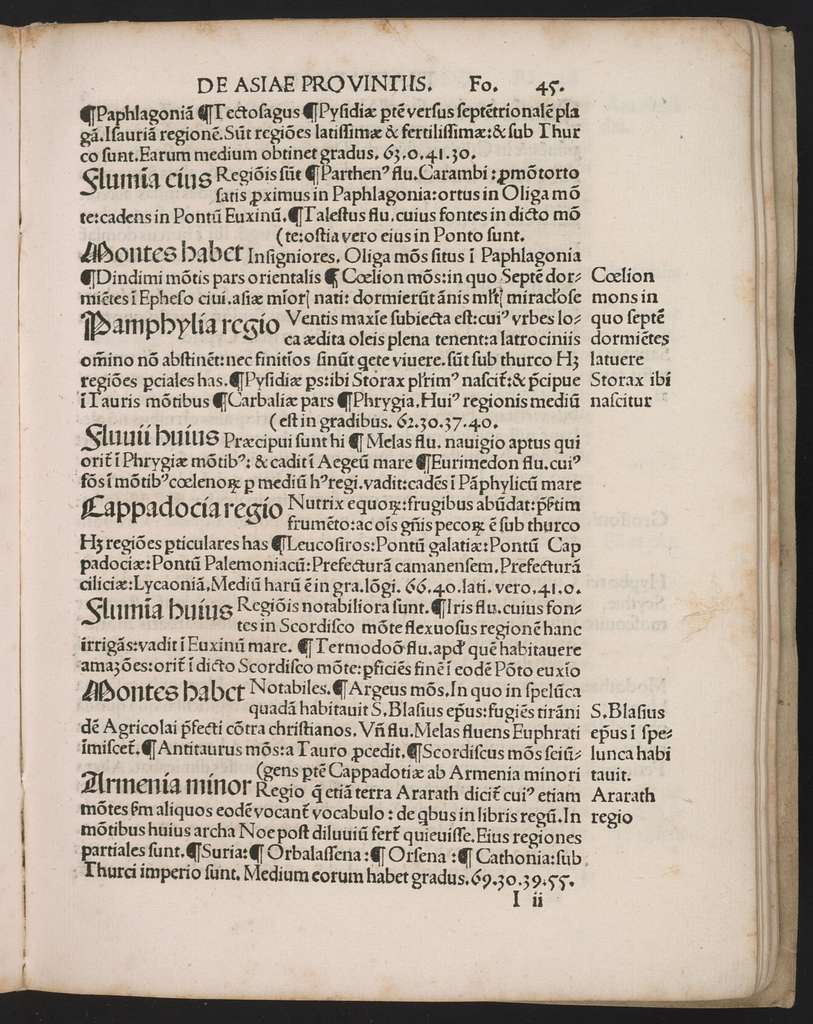 DE ASIAE PROVINTIIS. Fo. 45.
¶Paphlagoniã ¶Tectosagus ¶Pysidiæ ꝑtẽ versus septẽtrionalẽ pla
gã.Isauriã regionẽ.Sũt regiões latissimæ & fertilissimæ:& sub Thur
co sunt.Earum medium obtinet gradus. 63.0.41.30.
Flumĩa eius Regiõis sũt ¶Parthenꝰ flu.Carambi :ꝓmõtorto
satis ꝓximus in Paphlagonia:ortus in Oliga mõ
te:cadens in Pontũ Euxinũ.¶Talestus flu.cuius fontes in dicto mõ
(te:ostia vero eius in Ponto sunt.
Montes habet Insigniores. Oliga mõs situs ĩ Paphlagonia
¶Dindimi mõtis pars orientalis ¶ Cœlion mõs:in quo Septẽ dor-
miẽtes ĩ Epheso ciui.asiæ mĩor nati: dormierũt ãnis mlt miraclose
Cœlion
mons in
Pamphylia regio Ventis maxĩe subiecta est:cuiꝰ vrbes lo-
ca ædita oleis plena tenent:a latrociniis
oĩno nõ abstinẽt:nec finitĩos sinũt qete viuere.sũt sub thurco Hꝫ
regiões ꝑciales has.¶Pysidiæ ꝑs:ibi Storax plrimꝰ nascit̃:& p̃cipue
ĩ Tauris mõtibus ¶Carbaliæ pars ¶Phrygia.Huiꝰ regionis mediũ
(est in gradibus. 62.30.37.40.
quo septẽ
dormiẽtes
latuere
Storax ibi
nascitur
Fluuii huius Præcipui sunt hi ¶ Melas flu. nauigio aptus qui
orit̃ ĩ Phrygiæ mõtibꝰ: & cadit ĩ Aegeũ mare ¶Eurimedon flu.cuiꝰ
fõs ĩ mõtibꝰ cœlenoꝝ ꝑ mediũ hꝰregi.vadit:cadẽs ĩ Pãphylicũ mare
Cappadocia regio Nutrix equoꝝ:frugibus abũdat:p̃sertim
frumẽto:ac oĩs gñis pecoꝝ ẽ sub thurco
Hꝫ regiões ꝑticulares has ¶Leucosiros:Pontũ galatiæ:Pontũ Cap
padociæ:Pontũ Palemoniacũ:Prefecturã camanensem.Prefecturã
ciliciæ:Lycaoniã.Mediũ harũ ẽ in gra.lõgi. 66.40.lati. vero.41.0.
Flumĩa huius Regiõis notabiliora sunt.¶Iris flu.cuius fon-
tes in Scordisco mõte flexuosus regionẽ hanc
irrigãs:vadit ĩ Euxinũ mare. ¶Termodoõ flu.apd' quẽ habitauere
amaꝫões:orit̃ ĩ dicto Scordisco mõte:ꝑficiẽs finẽ ĩ eodẽ Põto euxĩo
Montes habet Notabiles.¶Argeus mõs.In quo in spelũca
quadã habitauit S.Blasius ep̃us:fugiẽs tirãni
dẽ Agricolai p̃fecti cõtra christianos. Vñ flu.Melas fluens Euphrati
ĩmiscet̃.¶Antitaurus mõs:a Tauro ꝓcedit.¶Scordiscus mõs seiũ-
(gens ꝑtẽ Cappadotiæ ab Armenia minori
S.Blasius
ep̃us ĩ spe-
lunca habi
tauit.
Armenia minor Regio q̃ etiã terra Ararath dicit̃ cuiꝰ etiam
mõtes sm aliquos eodẽ vocant̃ vocabulo : de qbus in libris regũ.In
mõtibus huius archa Noe post diluuiũ fert̃ quieuisse.Eius regiones
partiales sunt.¶Suria:¶ Orbalassena :¶ Orsena :¶ Cathonia:sub
Thurci imperio sunt. Medium eorum habet gradus.69.30.39.55.
Ararath
regio
I ii